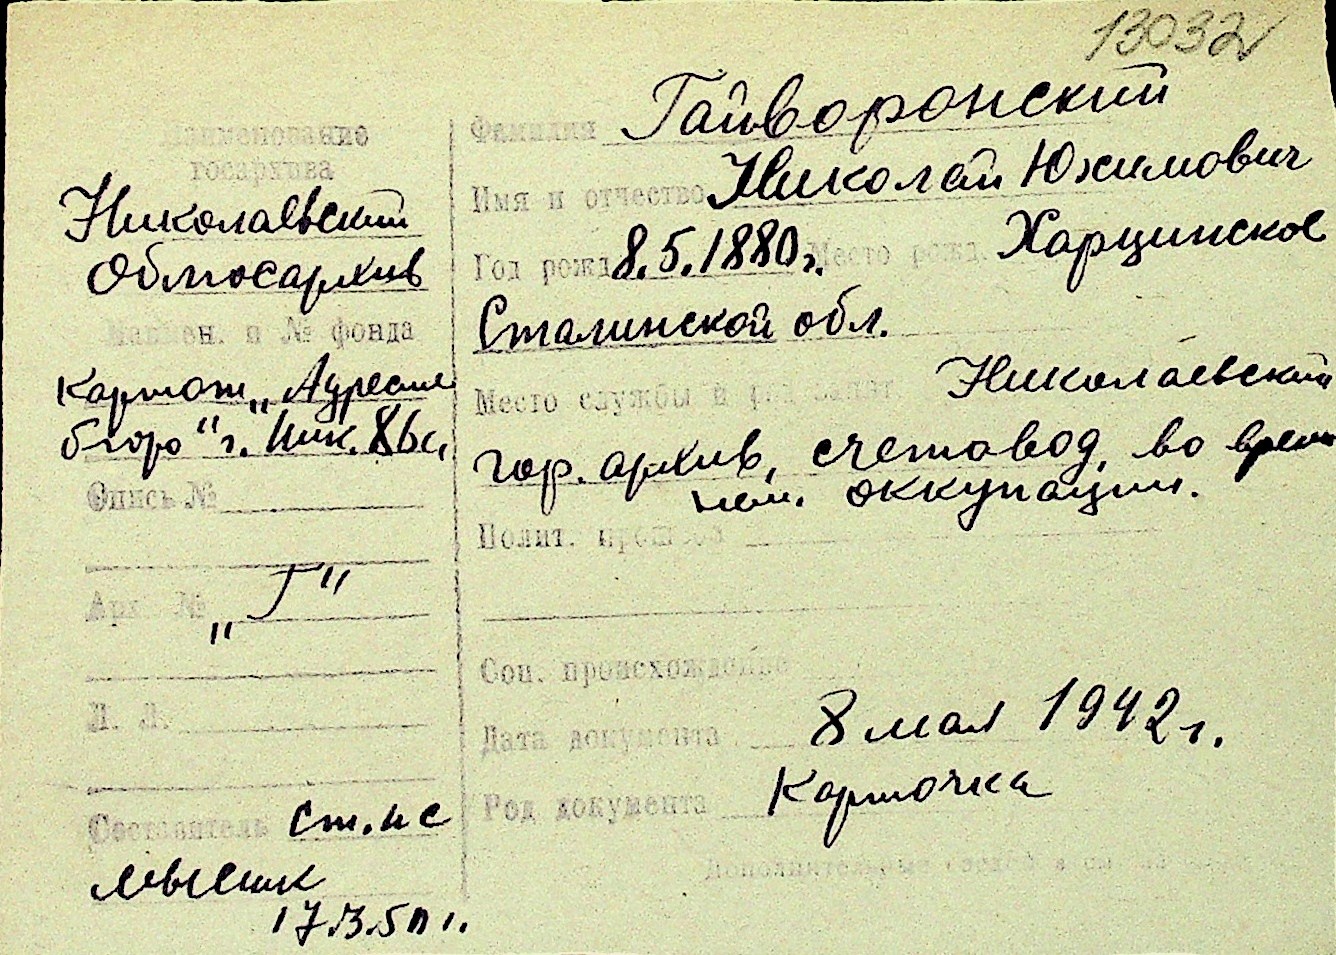 13032
наименование
госархива
Николаевский
Облгосархив
Наимен. и № фонда
Картот. „Адресные
бюро" г. Ник.
Опись №
Арх. № „Г"
Л. Л.
Составитель ст. н с
17.3.50 г.
Фамилия Гайворонский
Имя и отчество Николай Юхимович
Год рожд. 8.5.1880 г. Место рожд. Харцинское
Сталинской обл.
Место службы и Николаевский
гор. архив, счетовод, во врем
нем. оккупации.
Полит.
Соц. происхождение
Дата документа 8 мая 1942 г.
Род документа Карточка
Дополнительные